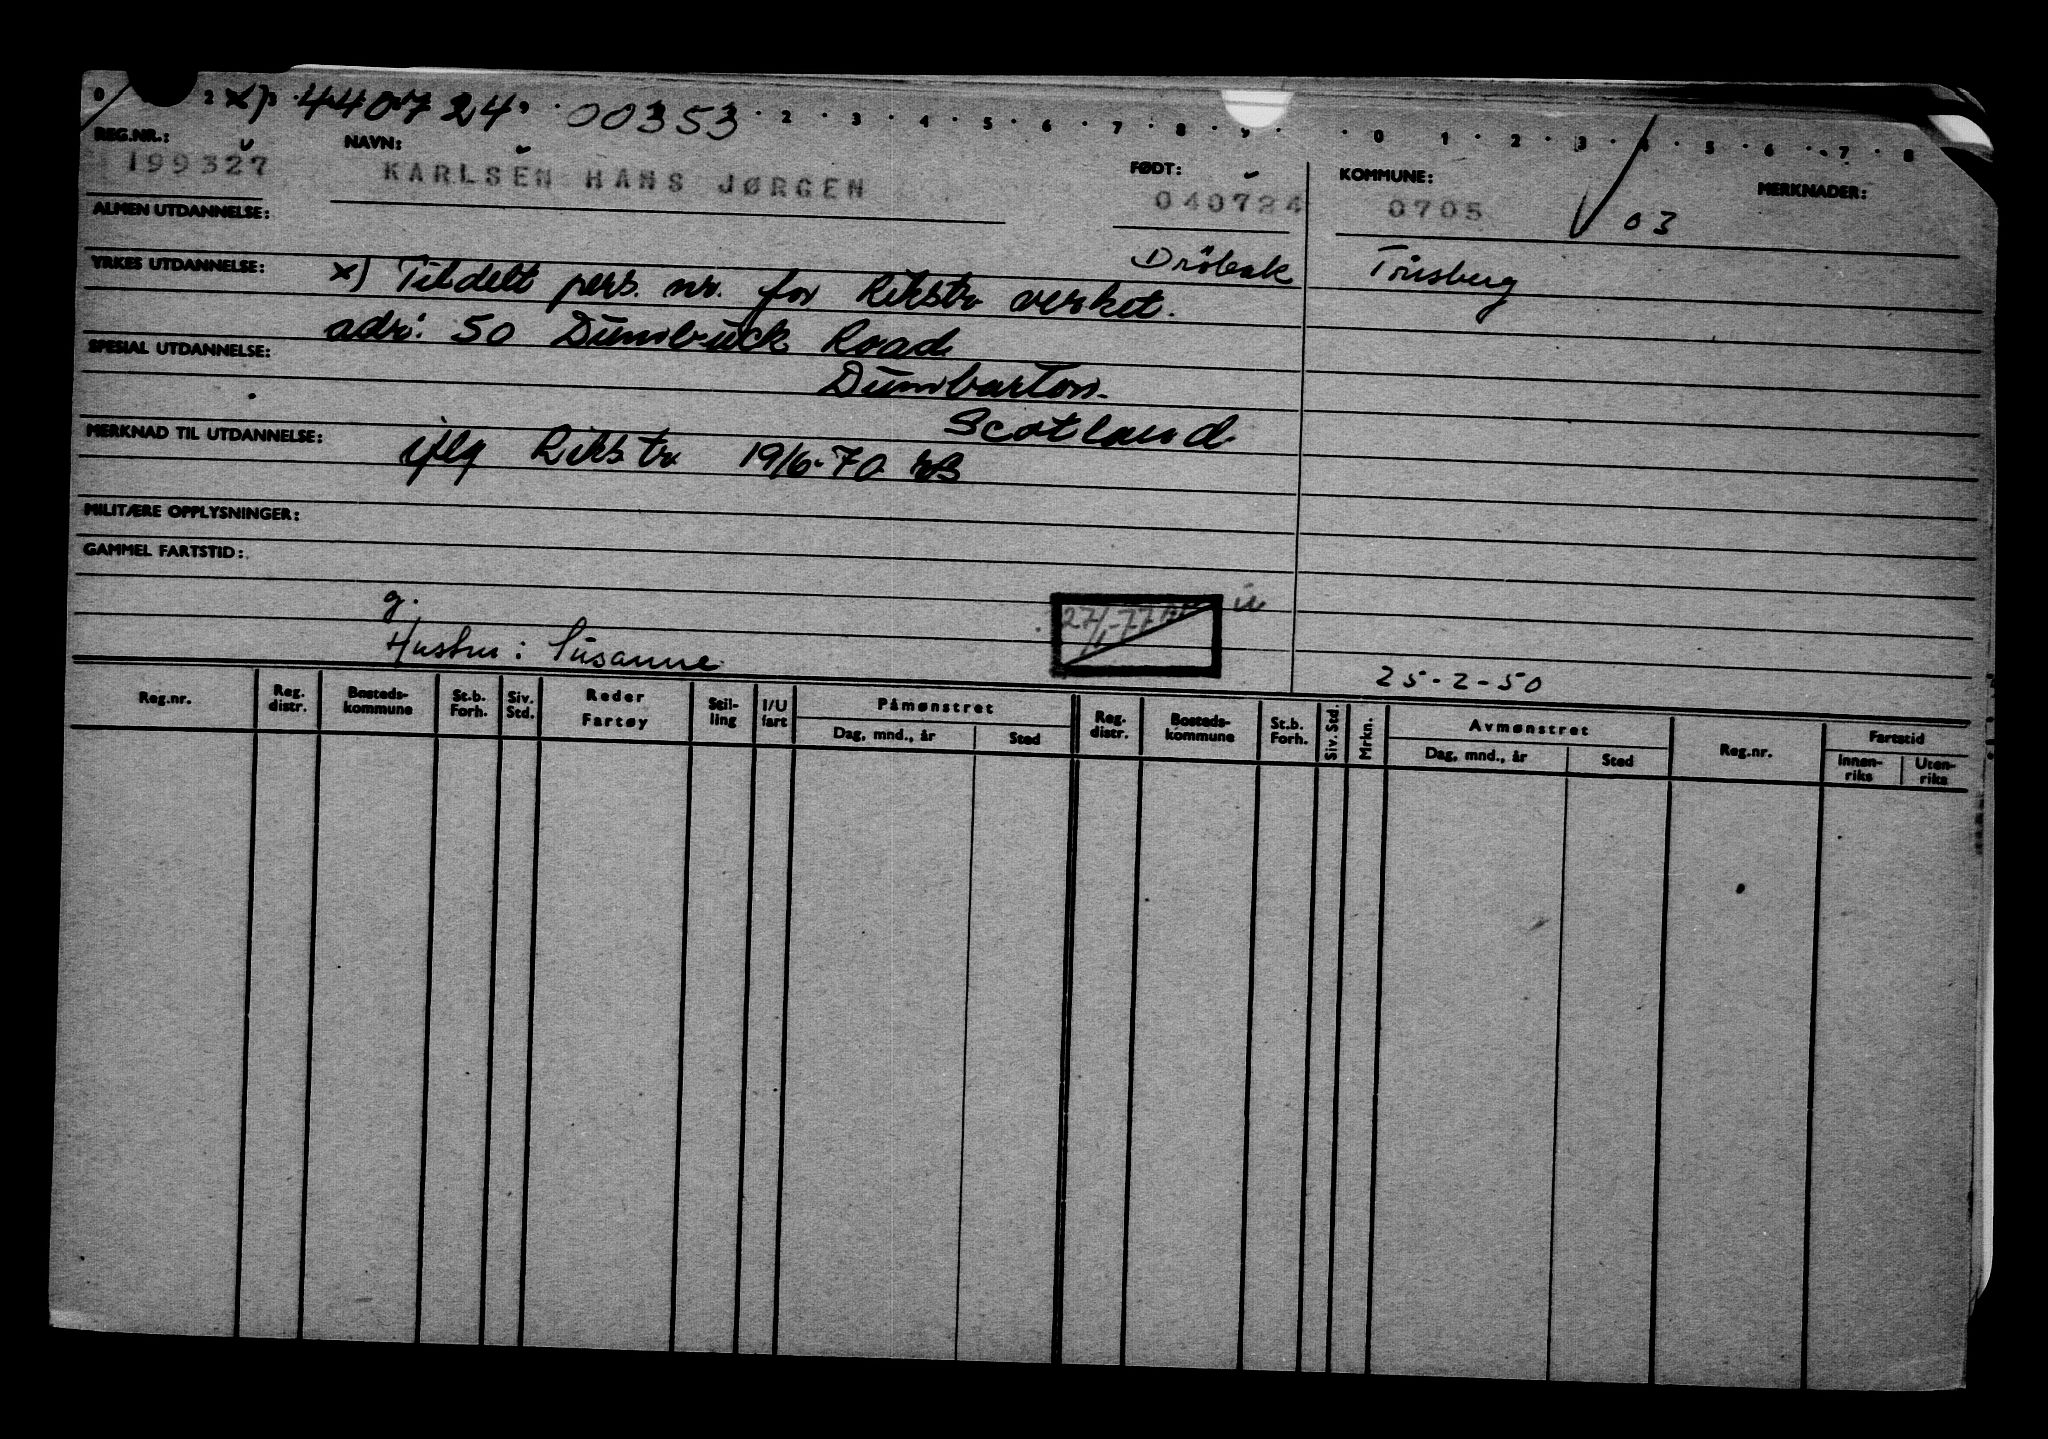 0 2 x) 440724 00353 2 3 4 5 6 7 8 9 0 1 2 3 4 5 6 7 8
REG.NR.: NAVN: FØDT: KOMMUNE: MERKNADER:
199327 KARLSEN HANS JØRGEN 040724 0705 03
ALMEN UTDANNELSE:
Dröbak Tønsberg
YRKES UTDANNELSE: x) Tildelt pers. nr. for Rikstr verket.
adr: 50 Dumbuck Road
SPESIAL UTDANNELSE:
Dumbarton
Scotland
MERKNAD TIL UTDANNELSE: iflg Rikstr 19/6-70
MILITÆRE OPPLYSNINGER:
GAMMEL FARTSTID:
g.
27/1-77
Hustru: Susanne
25-2-50
Reg.nr. Reg. distr. Bosteds-kommune St.b. Forh. Siv. Std. Reder Fartøy Stil-ling I/U fart Påmønstret Dag, mnd., år Sted Reg. distr. Bosteds-kommune St.b. Forh. Siv. Std. Mrkn. Avmønstret Dag, mnd., år Sted Reg.nr. Fartstid Innen-riks Uten-riks